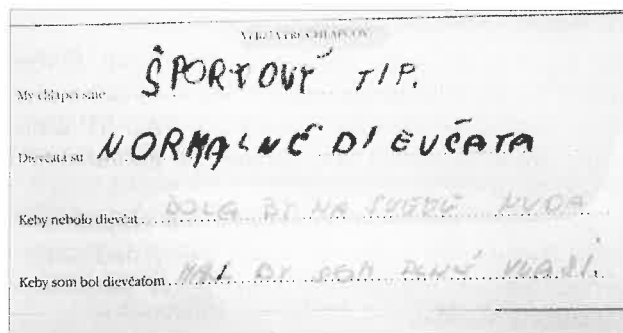 VERZIA PRE CHLAPCOV
My chlapci sme ŠPORTOVÝ TIP.
Dievčatá sú NORMALNÉ DIEVČATA
Keby nebolo dievčat BOLA BY NA SVETE NUDA
Keby som bol dievčaťom MAL BY SOM DLHÉ VLASI.